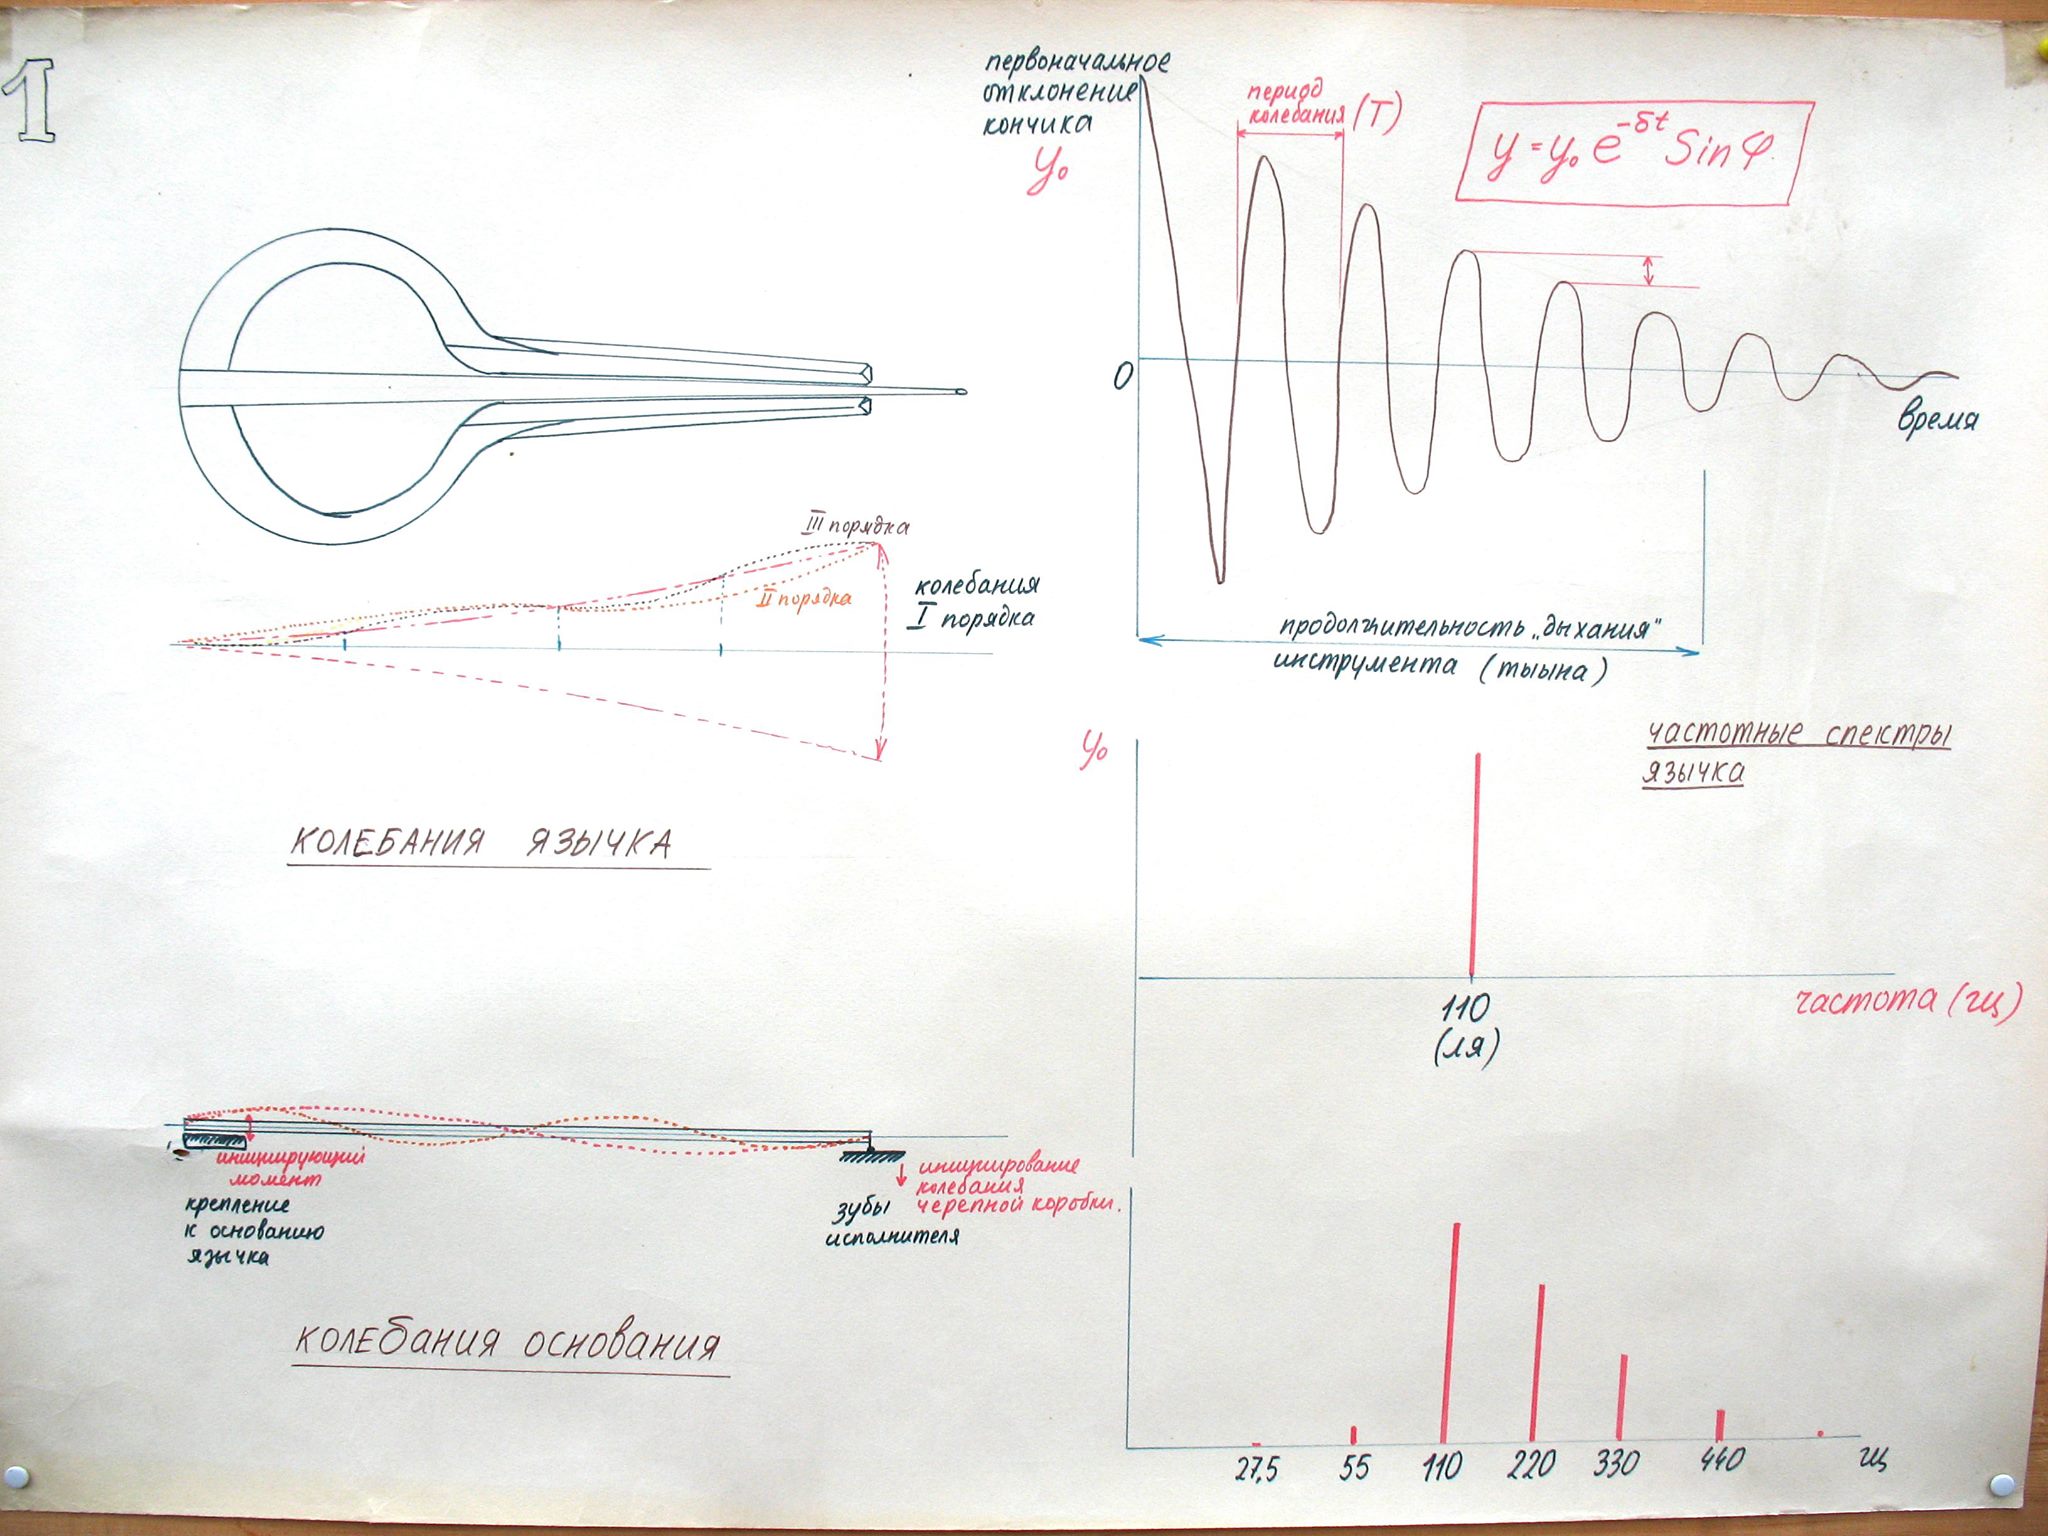 1
первоначальное
отклонение
кончика
y₀
период
колебания (T)
y = y₀ e^-δt Sin φ
0
время
III порядка
II порядка
колебания
I порядка
продолжительность „дыхания"
инструмента (тыына)
КОЛЕБАНИЯ ЯЗЫЧКА
частотные спектры
язычка
y₀
110
(ля)
частота (гц)
инициирующий
момент
крепление
к основанию
язычка
зубы
исполнителя
инициирование
колебания
черепной коробки.
КОЛЕБАНИЯ ОСНОВАНИЯ
27,5 55 110 220 330 440 гц